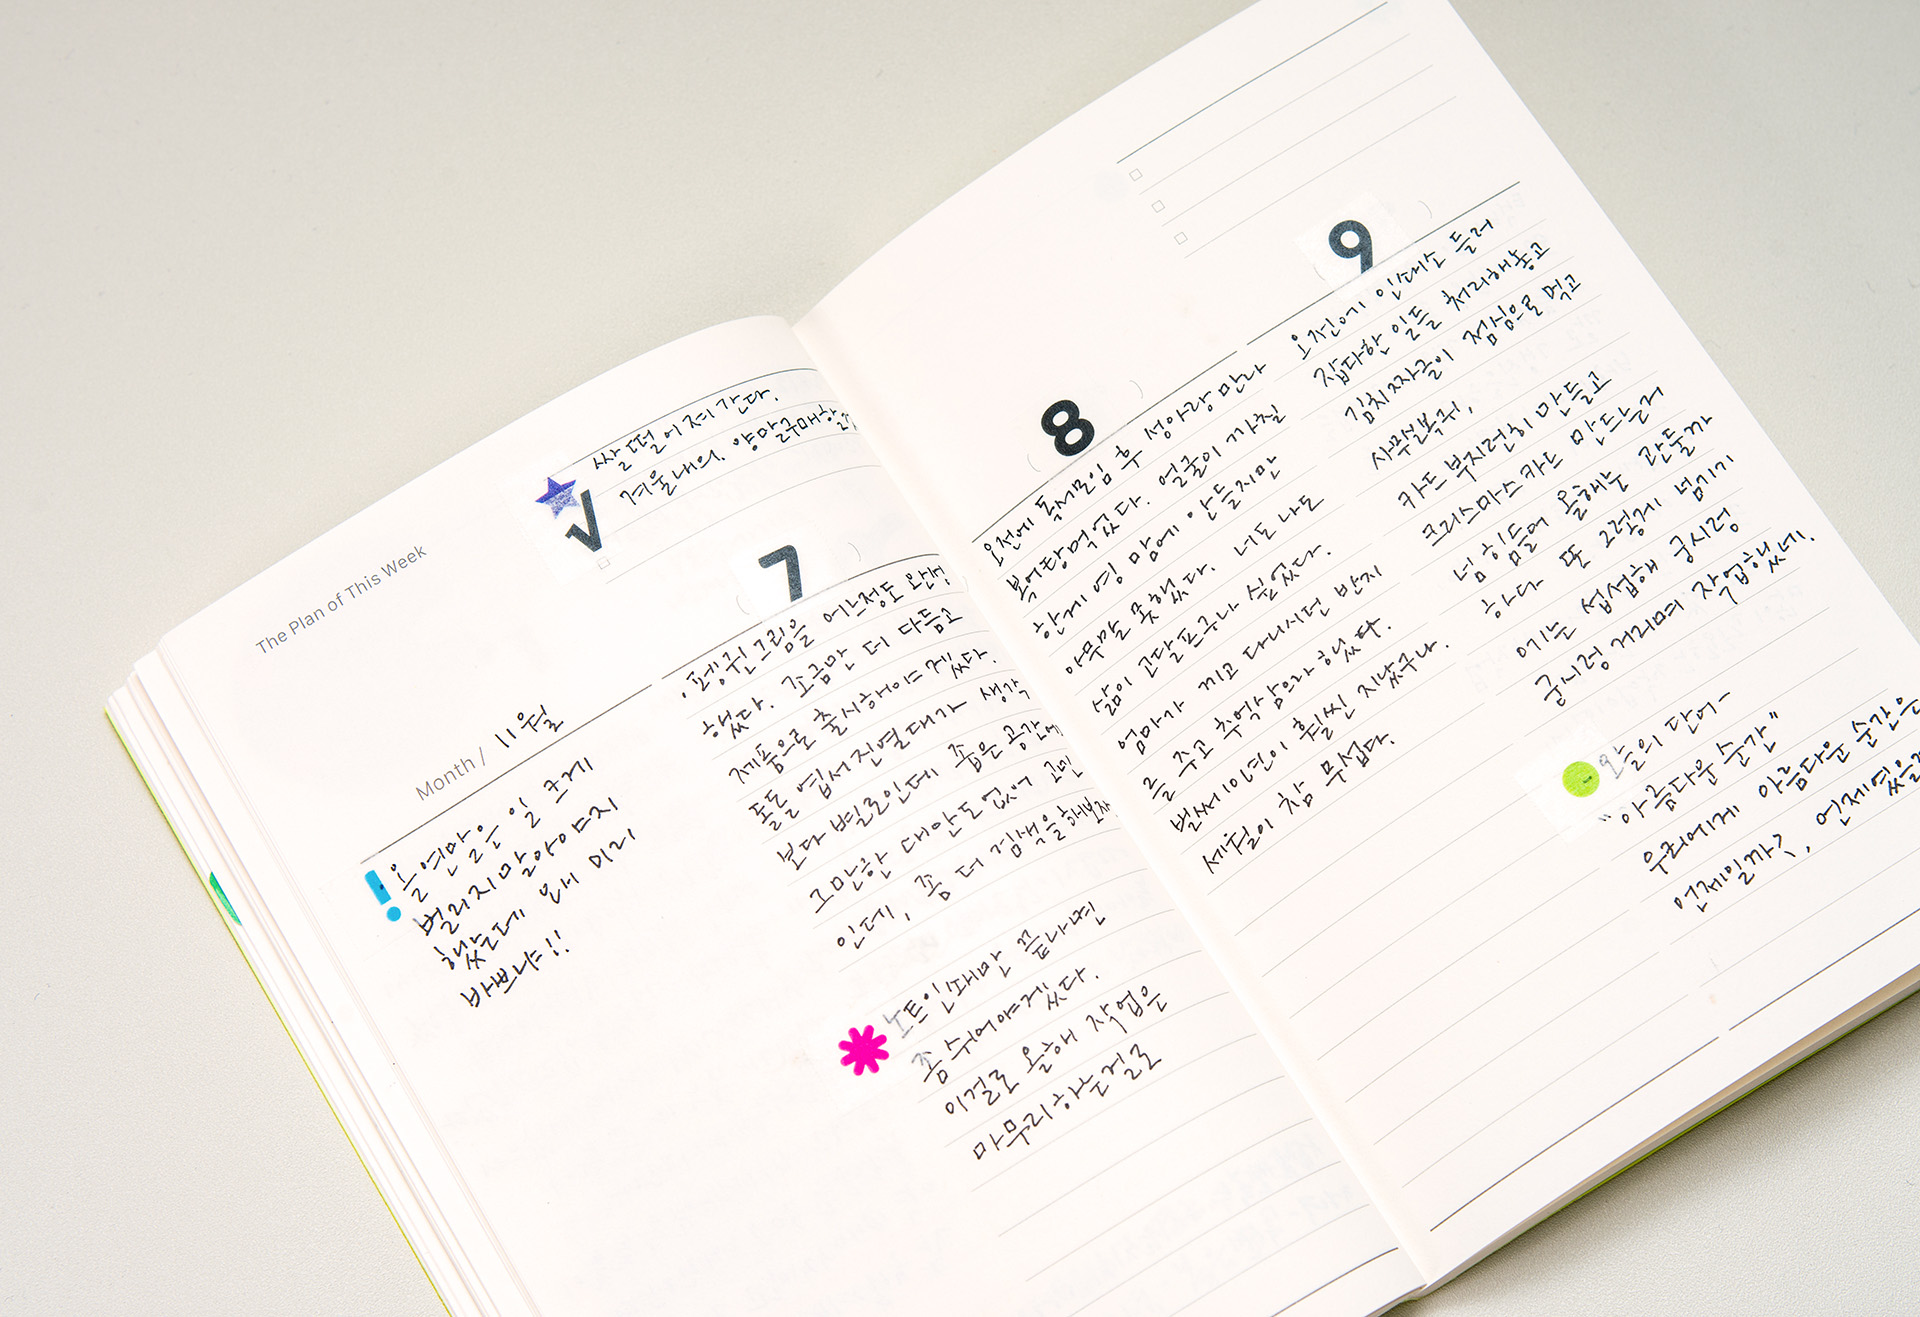 The Plan of This Week
Month / 11월
올 연말은 일 크게
벌리지 말아야지
했는데 왜 미리
바쁘냐!!
쌀 떨어져 간다.
겨울내의, 양말구매할것
7
펭귄그림을 어느정도 완성
했다. 조금만 더 다듬고
제품으로 출시해야겠다.
폼폼 엽서 진열대가 생각
보다 별로인데 좁은 공간에
그만한 대안도 없어 고민
인데, 좀 더 검색을 해보자
노트인쇄만 끝나면
좀 쉬어야겠다.
이걸로 올해 작업은
마무리하는걸로
8
오전에 독서모임 후 성아랑 만나
북어탕 먹었다. 얼굴이 까칠
한게 영 맘에 안들지만
아무말 못했다. 너도 나도
삶이 고달프구나 싶었다.
엄마가 끼고 다니시던 반지
를 주고 추억삼으라 했다.
벌써 10년이 훨씬 지났구나.
세월이 참 무섭다.
9
오전에 인쇄소 들러
잡다한 일들 처리해놓고
김치짜글이 점심으로 먹고
사무실복귀.
카드 부지런히 만들고
크리스마스카드 만드는게
넘 힘들어 올해는 관둘까
하다 또 그렇게 넘기기
에는 섭섭해 궁시렁
궁시렁 거리며 작업했네.
오늘의 단어-
"아름다운 순간"
우리에게 아름다운 순간은
언제일까?, 언제였을까